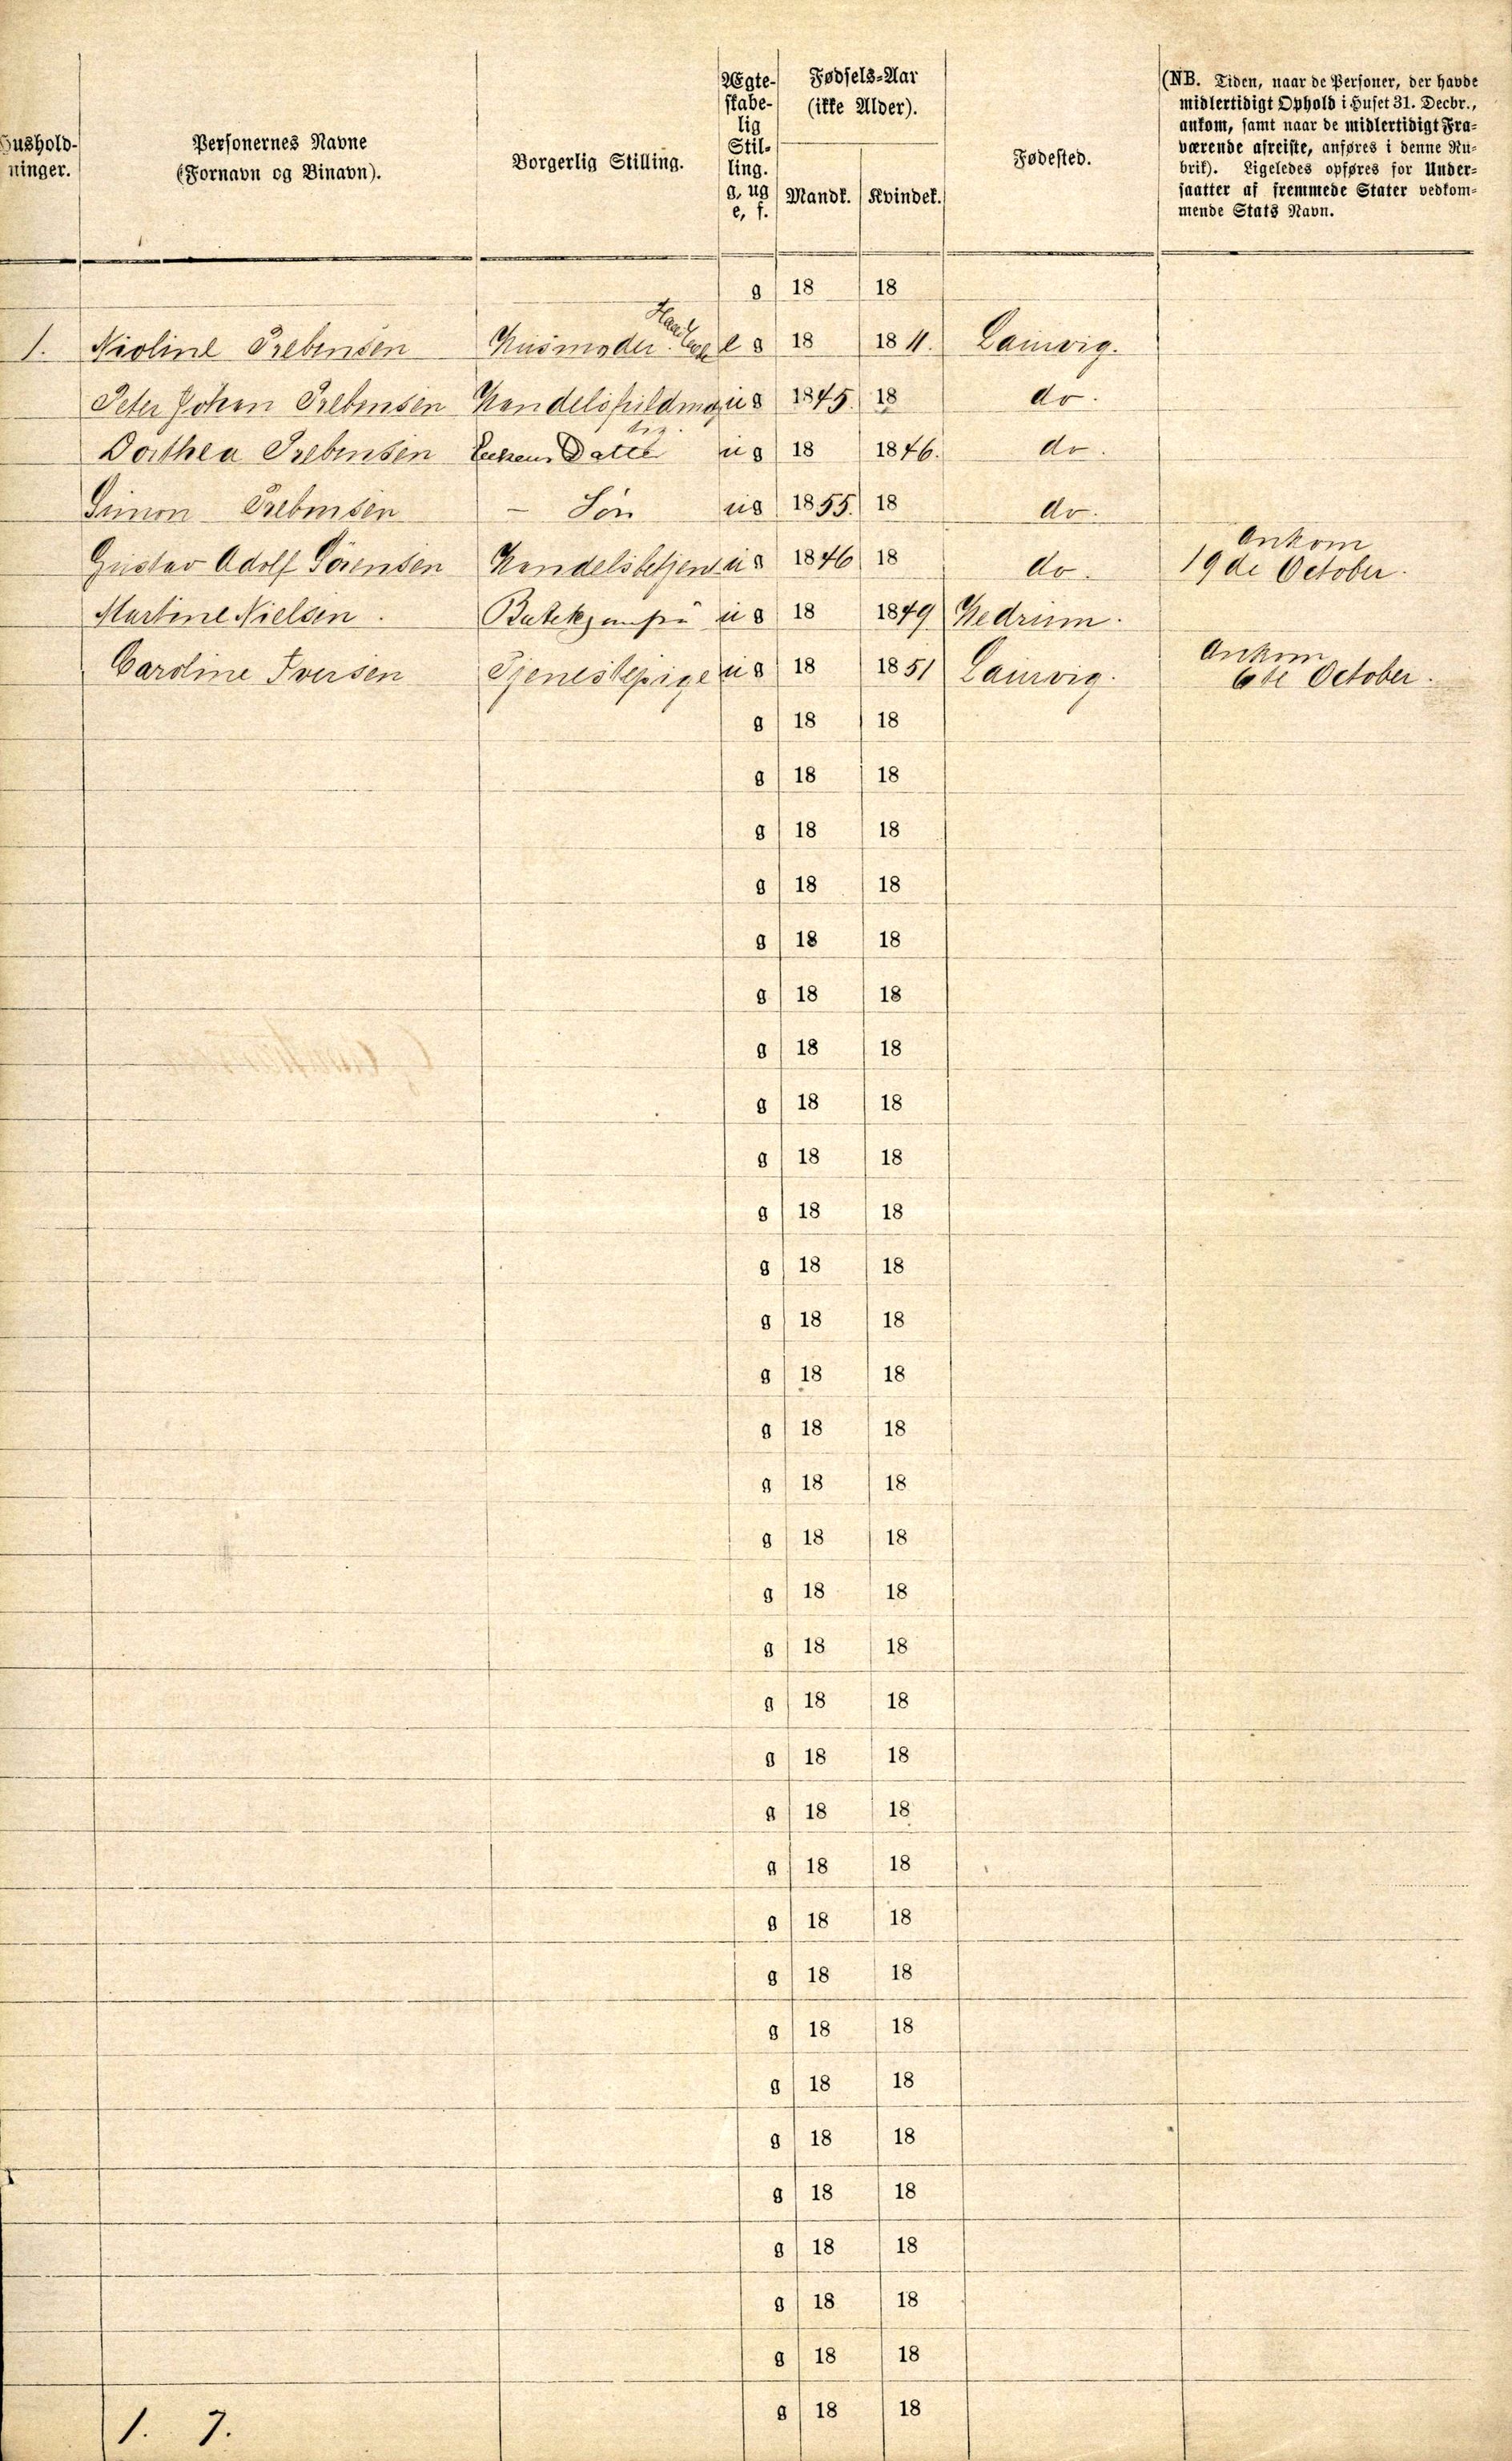 Hushold-
ninger.
Personernes Navne
(Fornavn og Binavn).
Borgerlig Stilling.
Ægte-
skabe-
lig
Stil-
ling.
g, ug
e, f.
Fødsels-Aar
(ikke Alder).
Mandk. Kvindek.
Fødested.
(NB. Tiden, naar de Personer, der havde
midlertidigt Ophold i Huset 31. Decbr.,
ankom, samt naar de midlertidigt Fra-
værende afreiste, anføres i denne Ru-
brik). Ligeledes opføres for Under-
saatter af fremmede Stater vedkom-
mende Stats Navn.
g 18 18
1. Nicoline Prebensen Husmoder e g 18 1811. Laurvig.
Peter Johan Prebensen ug 1845. 18 do.
Dorthea Prebensen Datter ug 18 1846. do.
Simon Prebensen – Sön ug 1855. 18 do.
Gustav Adolf Sörensen Handelsbetjent ug 1846 18 do. Ankom
19de October.
Martine Nielsen. ug 18 1849 Hedrum.
Caroline Iversen Tjenestepige ug 18 1851 Laurvig. Ankom
6te October.
g 18 18
g 18 18
g 18 18
g 18 18
g 18 18
g 18 18
g 18 18
g 18 18
g 18 18
g 18 18
g 18 18
g 18 18
g 18 18
g 18 18
g 18 18
g 18 18
g 18 18
g 18 18
g 18 18
g 18 18
g 18 18
g 18 18
g 18 18
g 18 18
g 18 18
g 18 18
g 18 18
g 18 18
g 18 18
g 18 18
g 18 18
g 18 18
1. 7.